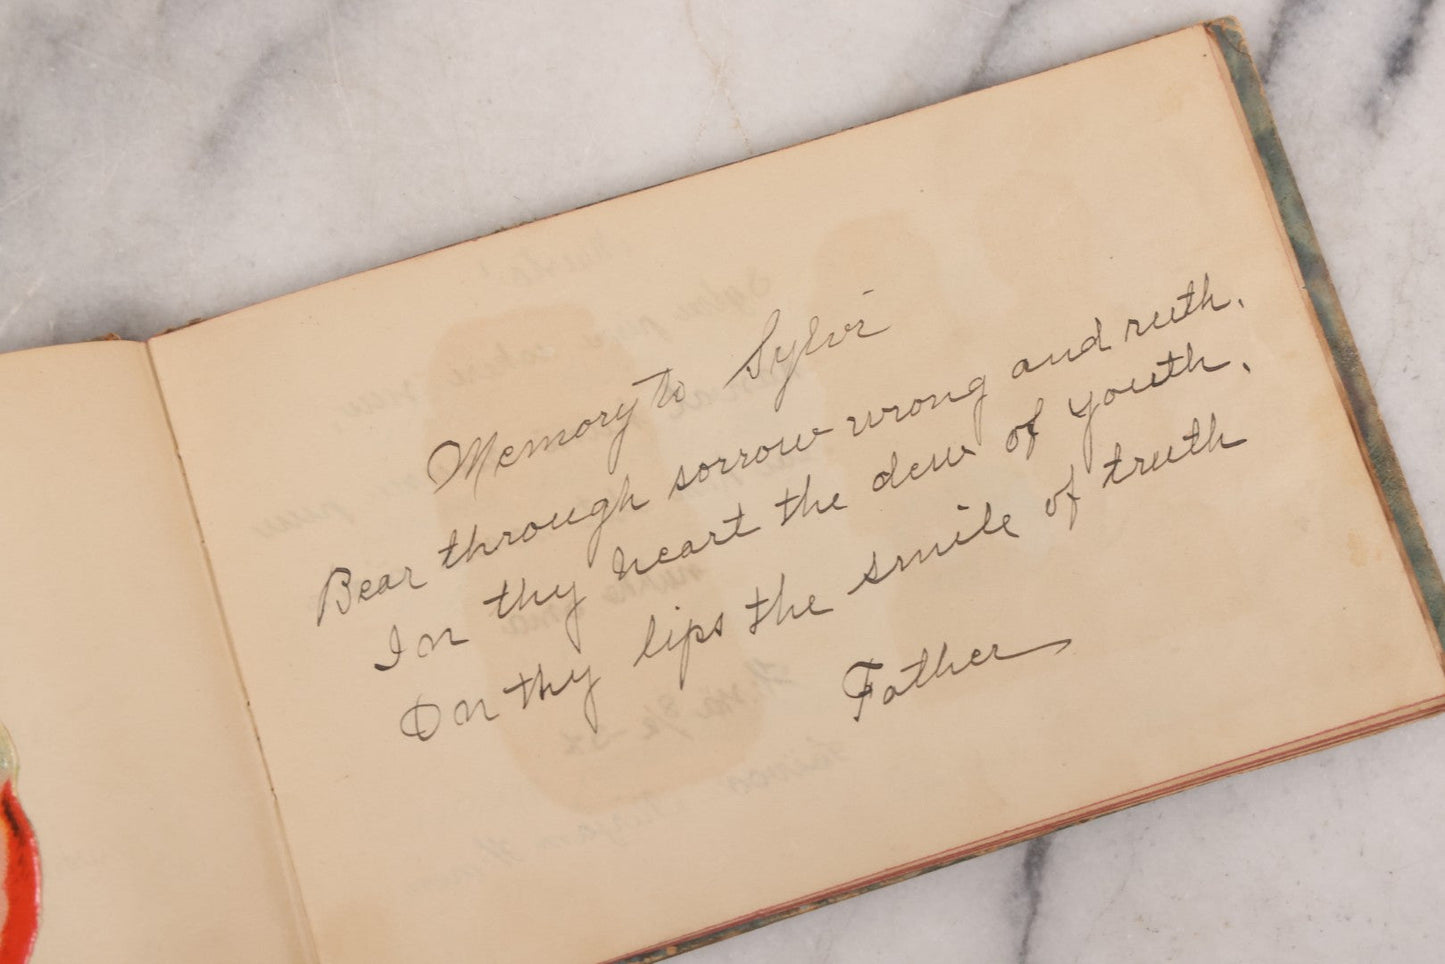 Memory to Sylvi
Bear through sorrow wrong and ruth.
In thy heart the dew of youth.
On thy lips the smile of truth
Father